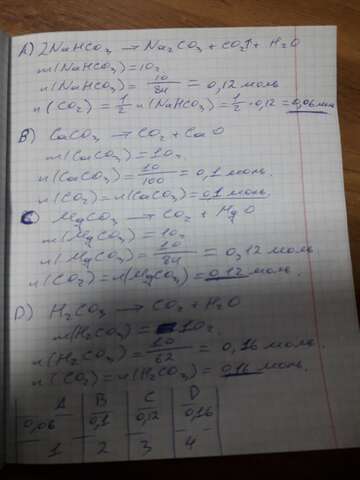 A) 2NaHCO₃ → Na₂CO₃ + CO₂↑ + H₂O
m(NaHCO₃) = 10г
n(NaHCO₃) = 10/84 = 0,12 моль
n(CO₂) = 1/2 n(NaHCO₃) = 1/2 · 0,12 = 0,06 моль
B) CaCO₃ → CO₂ + CaO
m(CaCO₃) = 10г
n(CaCO₃) = 10/100 = 0,1 моль.
n(CO₂) = n(CaCO₃) = 0,1 моль.
C) MgCO₃ → CO₂ + MgO
m(MgCO₃) = 10г
n(MgCO₃) = 10/84 = 0,12 моль
n(CO₂) = n(MgCO₃) = 0,12 моль.
D) H₂CO₃ → CO₂ + H₂O
m(H₂CO₃) = 10г.
n(H₂CO₃) = 10/62 = 0,16 моль.
n(CO₂) = n(H₂CO₃) = 0,16 моль.
A B C D
0,06 0,1 0,12 0,16
1 2 3 4